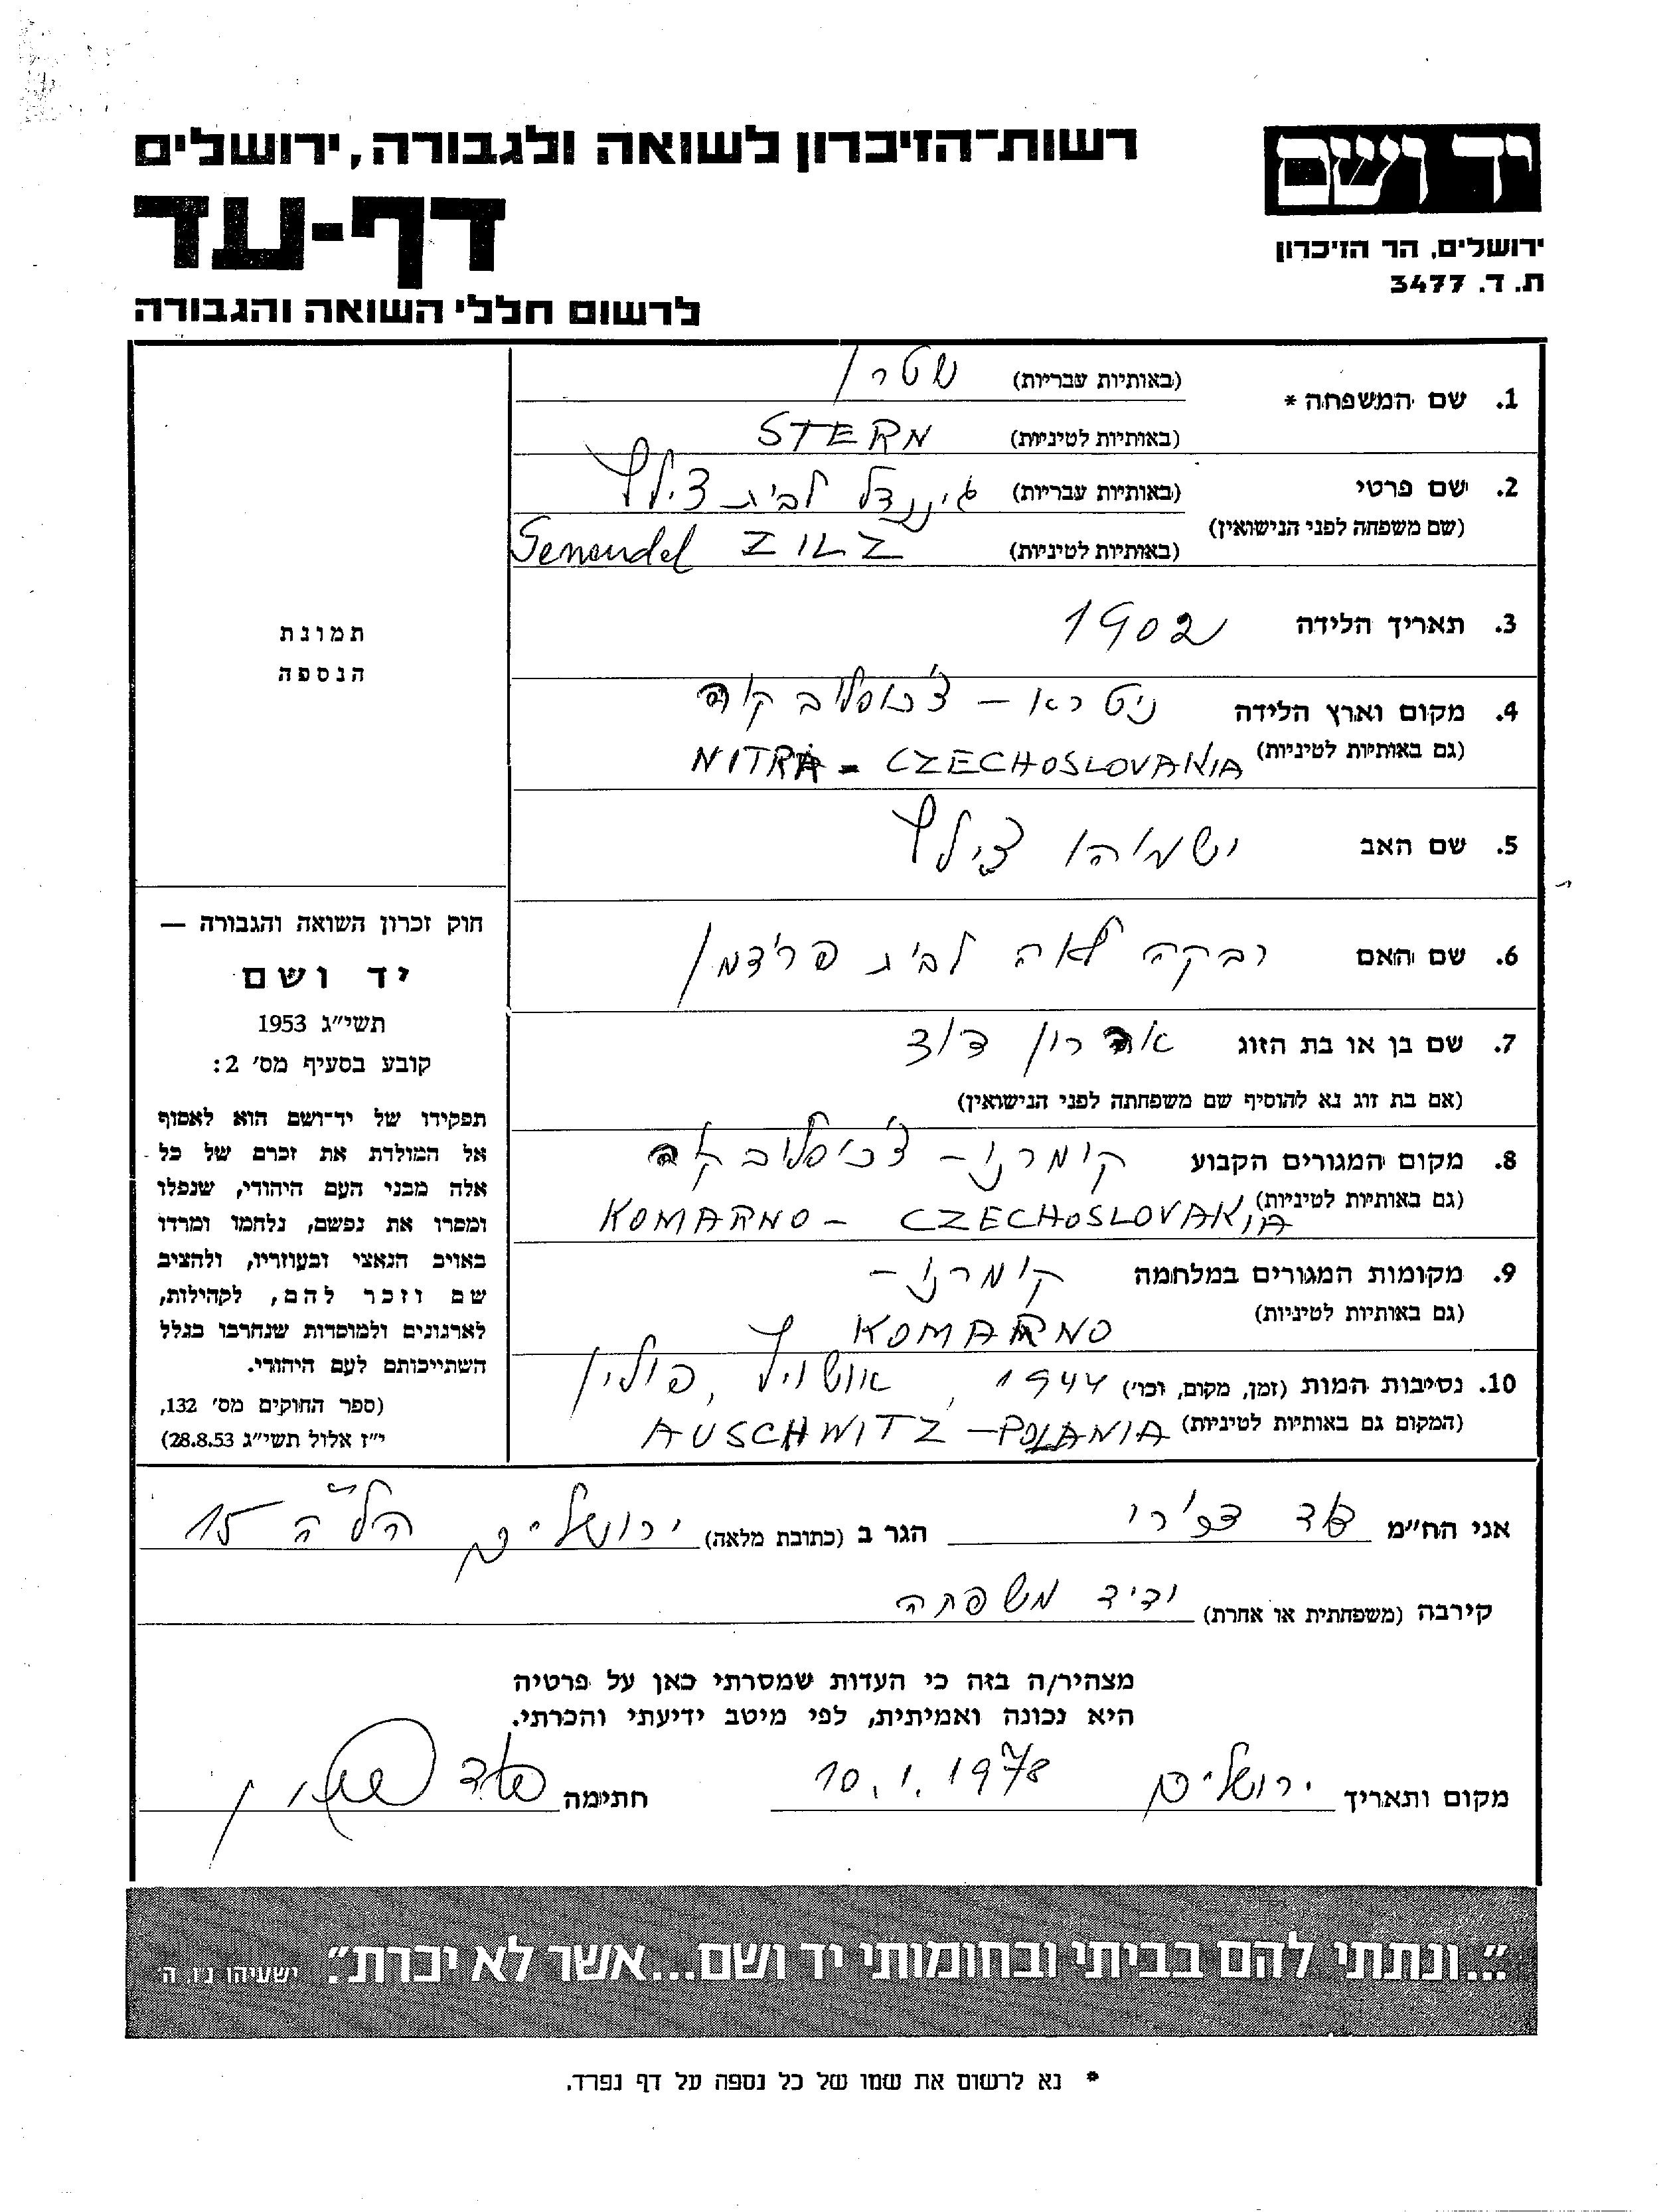 רשות־הזיכרון לשואה ולגבורה, ירושלים
דף-עד
לרשום חללי השואה והגבורה
יד ושם
ירושלים, הר הזיכרון
ת. ד. 3477
1. שם המשפחה * (באותיות עבריות) שטרן
(באותיות לטיניות) STERN
2. שם פרטי (באותיות עבריות) גיננדל לבית צילץ
(שם משפחה לפני הנישואין) (באותיות לטיניות) Genendel ZILZ
3. תאריך הלידה 1902
4. מקום וארץ הלידה ניטרא – צ'כוסלובקיה
(גם באותיות לטיניות) NITRA - CZECHOSLOVAKIA
5. שם האב ישעיהו צילץ
6. שם האם רבקה לאה לבית פרידמן
7. שם בן או בת הזוג אהרון דוד
(אם בת זוג נא להוסיף שם משפחתה לפני הנישואין)
8. מקום המגורים הקבוע קומרנו – צ'כוסלובקיה
(גם באותיות לטיניות) KOMARNO – CZECHOSLOVAKIA
9. מקומות המגורים במלחמה קומרנו –
(גם באותיות לטיניות) KOMARNO
10. נסיבות המות (זמן, מקום, וכו') 1944, אושויץ, פולין
(המקום גם באותיות לטיניות) AUSCHWITZ – POLANIA
תמונת
הנספה
חוק זכרון השואה והגבורה —
יד ושם
תשי"ג 1953
קובע בסעיף מס' 2:
תפקידו של יד־ושם הוא לאסוף
אל המולדת את זכרם של כל
אלה מבני העם היהודי, שנפלו
ומסרו את נפשם, נלחמו ומרדו
באויב הנאצי ובעוזריו, ולהציב
שם וזכר להם, לקהילות,
לארגונים ולמוסדות שנחרבו בגלל
השתייכותם לעם היהודי.
(ספר החוקים מס' 132,
י"ז אלול תשי"ג 28.8.53)
אני הח"מ הגר ב (כתובת מלאה) ירושלים הל"ה 15
קירבה (משפחתית או אחרת) ידיד משפחה
מצהיר/ה בזה כי העדות שמסרתי כאן על פרטיה
היא נכונה ואמיתית, לפי מיטב ידיעתי והכרתי.
מקום ותאריך ירושלים 10.1.1978 חתימה
"...ונתתי להם בביתי ובחומותי יד ושם...אשר לא יכרת". ישעיהו נ"ו, ה'
* נא לרשום את שמו של כל נספה על דף נפרד.